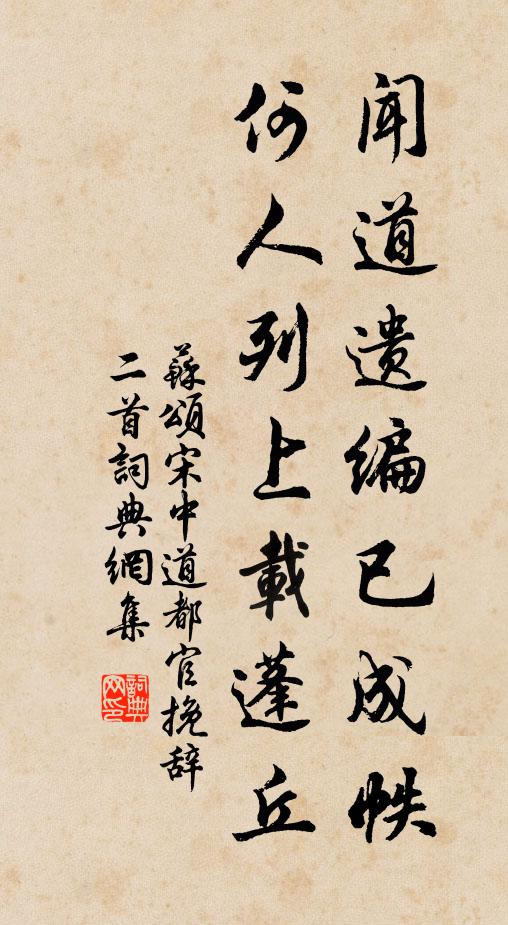 闻道遗编已成帙
何人列上載蓬丘
蘇頌宋中道都官挽辞
二首詞典網集
詞典网印